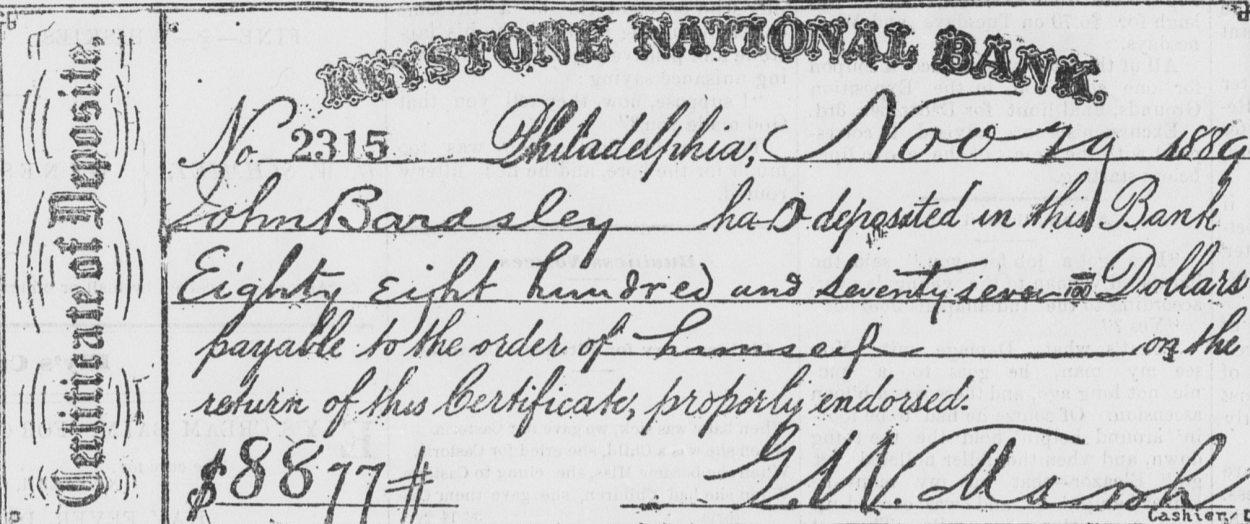 KEYSTONE NATIONAL BANK.
Certificate of Deposite.
No. 2315 Philadelphia, Nov 29 1889
John Bardsley ha-D deposited in this Bank
Eighty Eight hundred and seventy seven 00/100 Dollars
payable to the order of himself on the
return of this Certificate, properly endorsed.
$8877#
G.W. Marsh
Cashier.